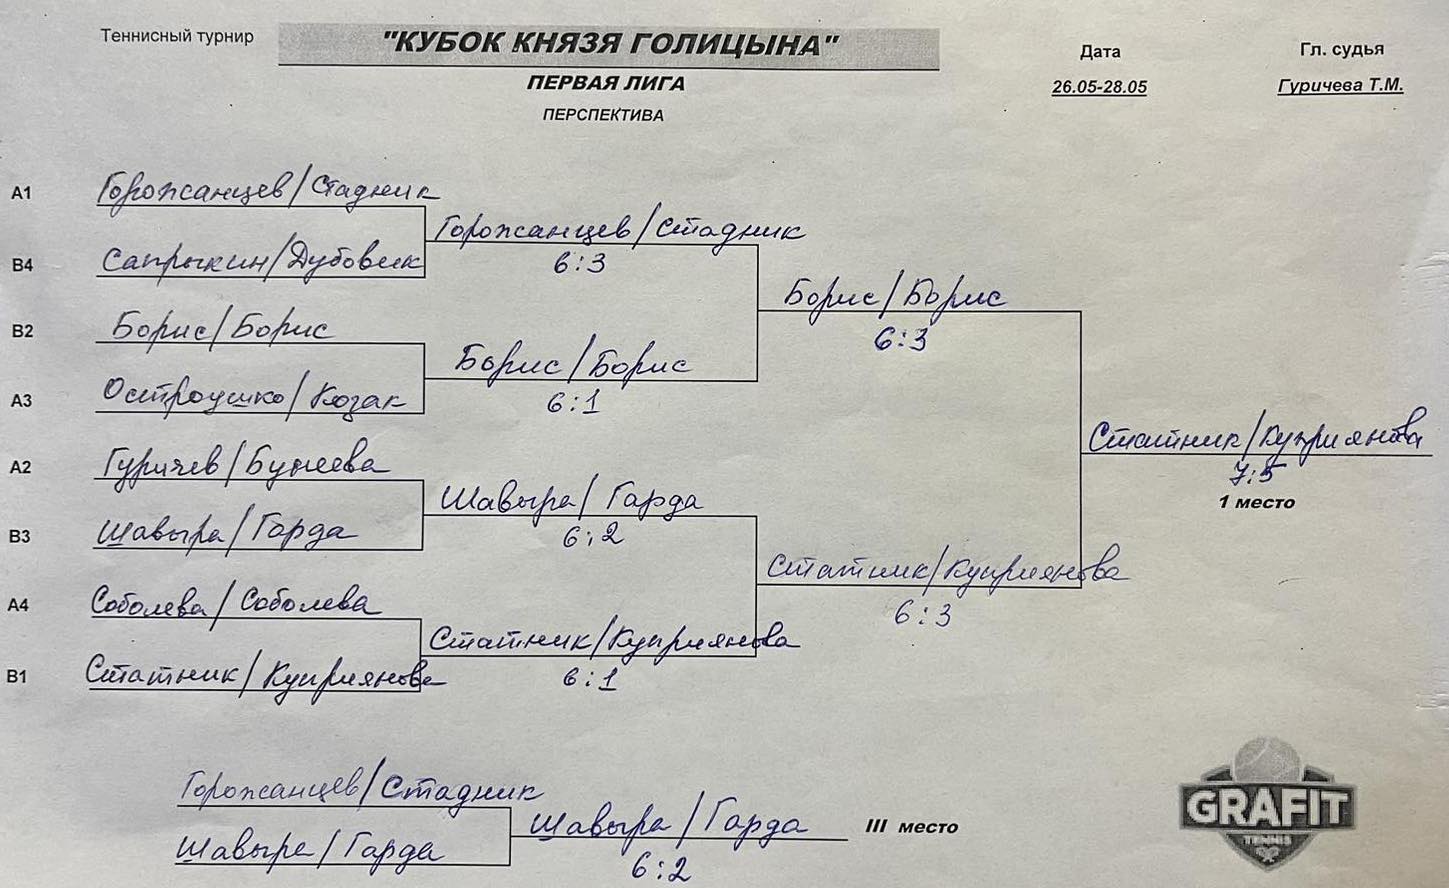 Теннисный турнир
"КУБОК КНЯЗЯ ГОЛИЦЫНА"
ПЕРВАЯ ЛИГА
ПЕРСПЕКТИВА
Дата
26.05-28.05
Гл. судья
Гуричева Т.М.
A1 Горожсанцев/Стадник
B4 Сапрыкин/Дубовик
Горожсанцев/Стадник
6:3
B2 Борис/Борис
A3 Остроушко/Козак
Борис/Борис
6:1
Борис/Борис
6:3
A2 Гуричев/Бунеева
B3 Шавыра/Гарда
Шавыра/Гарда
6:2
A4 Соболева/Соболева
B1 Статник/Куприянова
Статник/Куприянова
6:1
Статник/Куприянова
6:3
Статник/Куприянова
7:5
1 место
Горожсанцев/Стадник
Шавыра/Гарда
Шавыра/Гарда
6:2
III место
GRAFIT
TENNIS